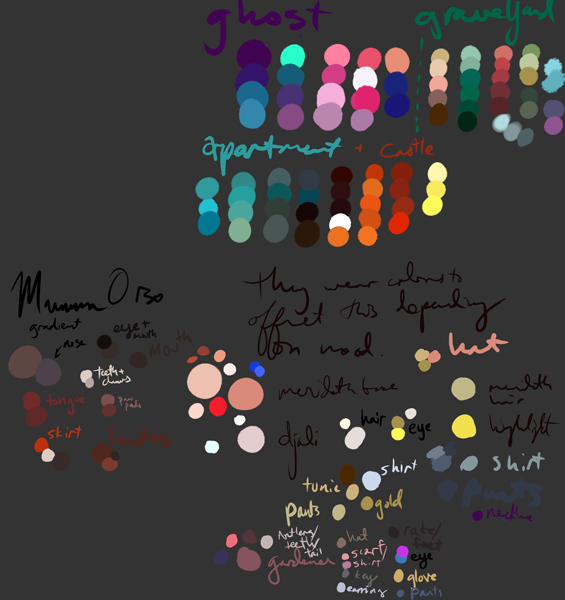 ghost
graveyard
apartment + castle
they wear colours to
offset this depending
on mood.
gradient
nose
eye +
mouth
mouth
teeth +
claws
tongue
paw
pads
skirt
meridith base
djali
hat
meridith
hair
highlight
hair
eye
shirt
tunic
pants
gold
shirt
pants
necklace
antlers/
teeth/
tail
gardener
hat
scarf/
shirt
key
earring
eye
glove
pants